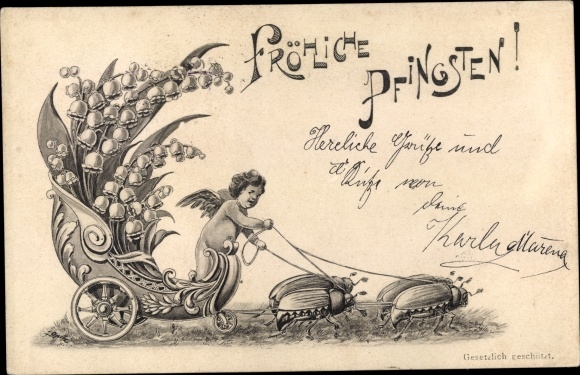 FRÖHLICHE
PFINGSTEN!
Herzliche Grüße und
Küße von
Karla
Gesetzlich geschützt.